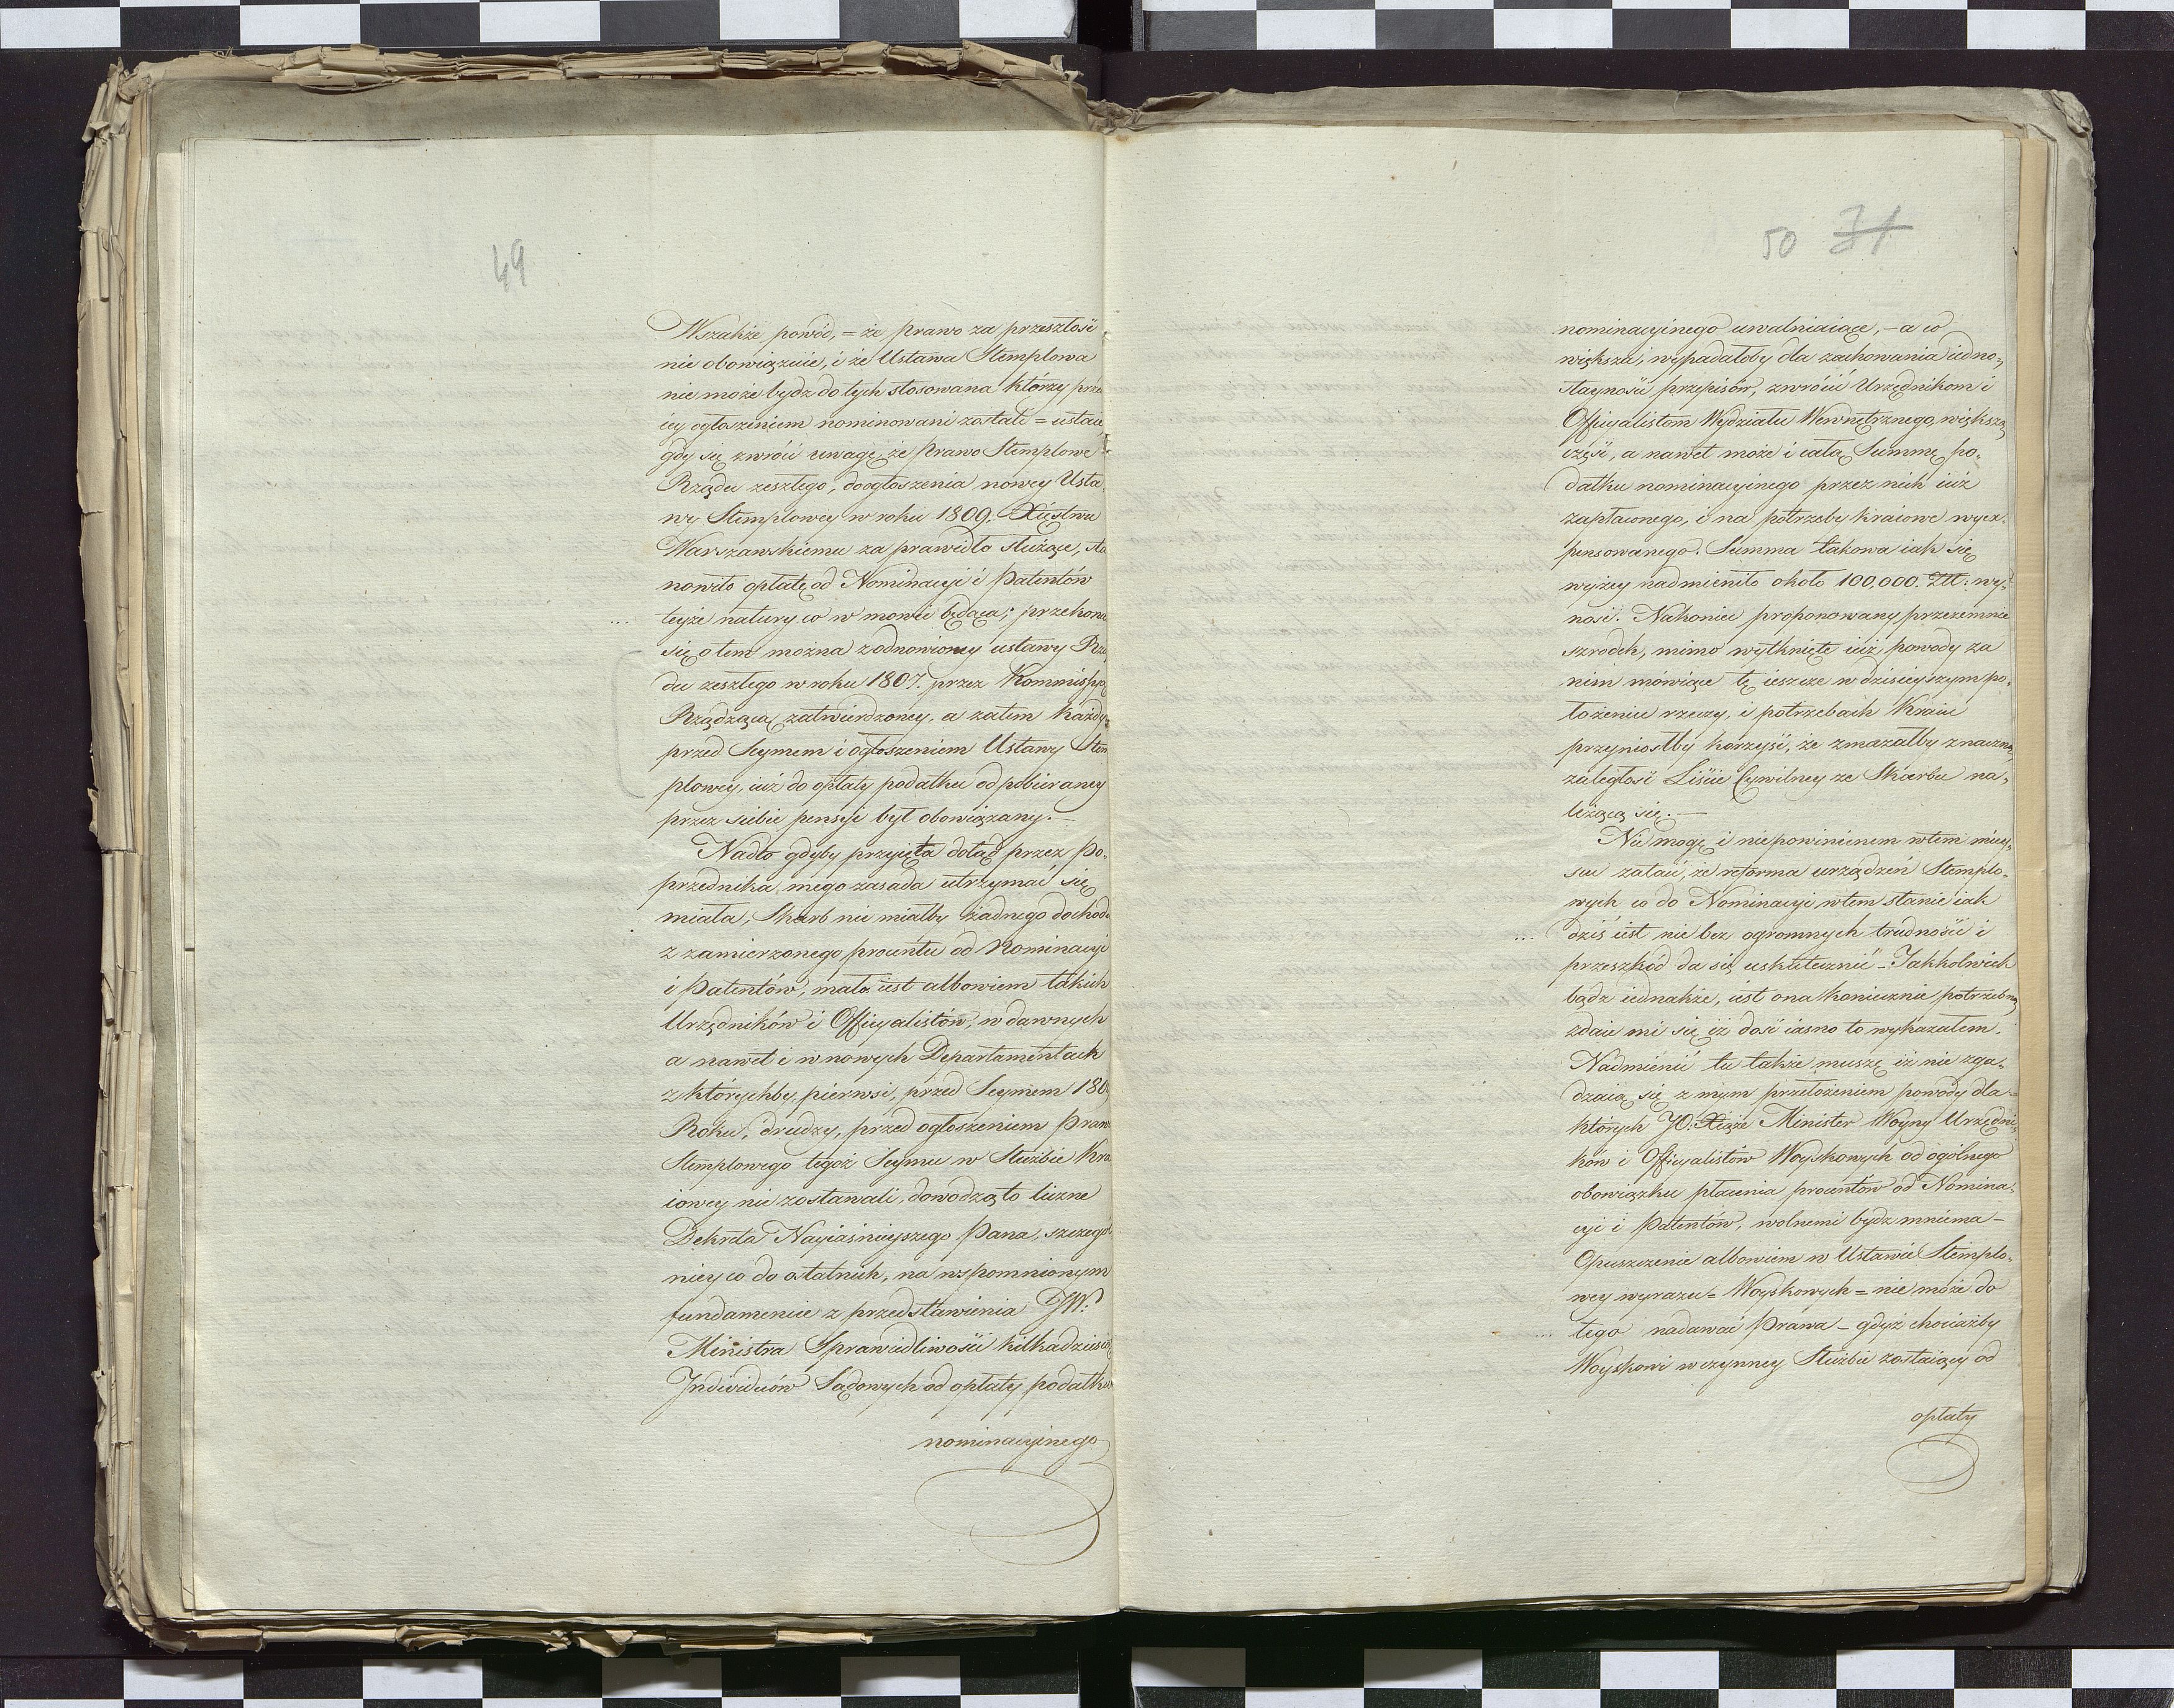 49
Wszakże powód, = że prawo za przeszłość
nie obowiązuie, i że Ustawa Stemplowa
nie może bydz do tych stosowana którzy prze
iey ogłoszeniem nominowani zostali = ustaie,
gdy się zwróci uwagę, że prawo Stemplowe
Rządu zeszłego, do ogłoszenia nowey Usta
wy Stemplowey w roku 1809. Xięstwu
Warszawskiemu za prawidło służące, sta
nowiło opłatę od Nominacyi i Patentów
teyże natury co w mowie będąca; przekonać
się o tem można z odnowioney ustawy Rzą
du zeszłego w roku 1807. przez Kommissyą
Rządzącą zatwierdzoney, a zatem każdy
przed Seymem i ogłoszeniem Ustawy Stem
plowey, iuż do opłaty podatku od pobieraney
przez siebie pensyi był obowiązany. —
Nadto gdyby przyięta dotąd przez Po-
przednika mego zasada utrzymać się
miała, Skarb nie miałby żadnego dochodu
z zamierzonego procentu od Nominacyi
i Patentów, mało iest albowiem takich
Urzędników i Officyalistów, w dawnych
a nawet i w nowych Departamentach
z którychby, pierwsi, przed Seymem 180
Roku, drudzy, przed ogłoszeniem Prawa
Stemplowego tegoż Seymu w Służbie Kra
iowey nie zostawali, dowodzą to liczne
Dekreta Nayiaśnieyszego Pana, szczegól
niey co do ostatnich, na wspomnionym
fundamencie z przedstawienia JW:
Ministra Sprawiedliwości kilkadziesiąt
Individuów Sądowych od opłaty podatku
nominacyinego
50 71
nominacyinego uwalniaiące, - a co
większa, wypadałoby dla zachowania iedno-
stayności przepisów, zwrócić Urzędnikom i
Officyalistom Wydziału Wewnętrznego, większą
część, a nawet może i całą Summę po-
datku nominacyinego przez nich iuż
zapłaconego, i na potrzeby kraiowe wyex-
pensowanego. Summa takowa iak się
wyżey nadmieniło około 100,000. Złł: wy-
nosi. Nakoniec proponowany przezemnie
szrodek, mimo wytknięte iuż powody za
nim mówiące tę ieszcze w dzisieyszym po-
łożeniu rzeczy, i potrzebach Kraiu
przyniosłby korzyść, że zmazałby znaczną
zaległość Liście Cywilney ze Skarbu na-
leżącą się. —
Nie mogę i niepowinienem w tem miey-
scu zataić, że reforma urządzeń Stemplo-
wych co do Nominacyi w tem stanie iak
dziś iest nie bez ogromnych trudności i
przeszkód da się uskutecznić - Jakkolwiek
bądz iednakże, iest ona koniecznie potrzebną
zdaie mi się iż dość iasno to wykazałem.
Nadmienić tu także muszę iż nie zga-
dzaią się z mym przełożeniem powody dla
których JO: Xiąże Minister Woyny Urzędni-
ków i Officyalistów Woyskowych od ogólnego
obowiązku płacenia procentów od Nomina-
cyi i Patentów, wolnemi bydz mniema -
Opuszczenie albowiem w Ustawie Stemplo-
wey wyrazu = Woyskowych = nie może do
tego nadawać Prawa - gdyż chociażby
Woyskowi w czynney Służbie zostaiący od
opłaty